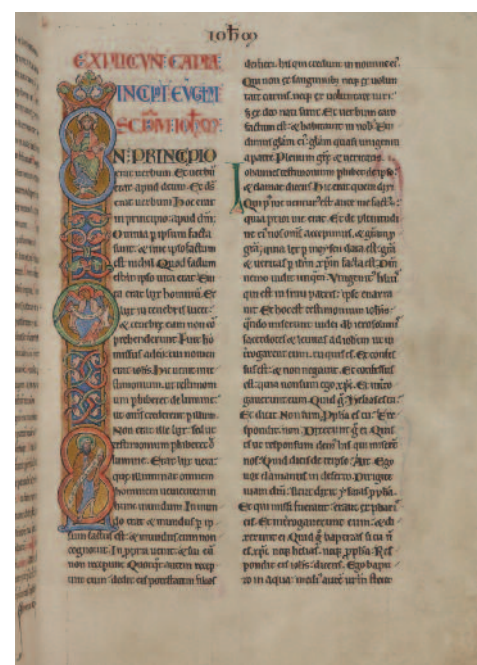 IOH̅
EXPLICIVNT CAPLA
INCIPIT EVGLM
SCDM IOHM
IN PRINCIPIO
erat verbum Et verbū
erat apud deum. Et dś
erat verbum Hoc erat
in principio apud dm̄.
Omnia p ipsum facta
sunt: & sine ipso factum
est nichil Quod factum
est in ipso vita erat Et vi
ta erat lux hominū. Et
lux in tenebris lucet:
& tenebre eam non cō
prehenderunt Fuit ho
missus a deo: cui nomen
erat iohs. Hic venit in te
stimonium. ut testimoni
um phiberet de lumine:
ut om̄s crederent p illum.
Non erat ille lux: sed ut
testimonium phiberet d̄
lumine. Erat lux vera:
que illuminat omnem
hominem venientem in
hunc mundum In mun
do erat & mundus p ip
sum factus est: & mundus eum non
cognovit. In ppria venit: & sui eū
non receperunt Quotqt autem recep
erunt eum: dedit eis potestatem filios
dei fieri. his qui credunt in nomine ei'.
Qui non ex sanguinibus neq; ex volun
tate carnis. neq; ex voluntate viri:
sed ex deo nati sunt. Et verbum caro
factum est: & habitavit in nob̄ Et vi
dimus glam ei': glam quasi unigeniti
a patre. Plenum gr̄e & veritatis.
Iohannes testimonium phibet de ipso:
& clamat dicens Hic erat quem dixi.
Qui p' me venturus est. ante me factus ē:
quia prior me erat. Et de plenitudi
ne ei' nos om̄s accepimus. & gr̄am p
gr̄a. quia lex p moysen data est: gr̄a
& veritas p ihm xpm facta est. Dm̄
nemo vidit unqm. Unigenit' filius
qui est in sinu patris: ipse enarra
vit Et hoc est testimonium iohis:
qndo miserunt iudei ab ierosolimis
sacerdotes & levitas ad iohem ut in
terrogarent eum. tu quis es. Et confes
sus est: & non negavit. Et confessus
est: quia non sum ego xpc. Et inter
rogaverunt eum Quid g̊ Helias es tu:
Et dixit. Non sum. Ppha es tu: Et re
spondit. non. Dixerunt g̊ ei Quis
es ut responsum dem' his qui miserūt
nos: Quid dicis de te ipso. Ait. Ego
vox clamantis in deserto. Dirigite
viam dn̄i. sicut dixit ysaias ppha.
Et qui missi fuerant: erant ex phari
seis. Et interrogaverunt eum: & di
xerunt ei Quid g̊ baptizas si tu n̄
es xpc. neq; helias: neq; ppha: Res
pondit eis iohs: dicens. Ego bapti
zo in aqua. medi' aute' vrm̄ stetit